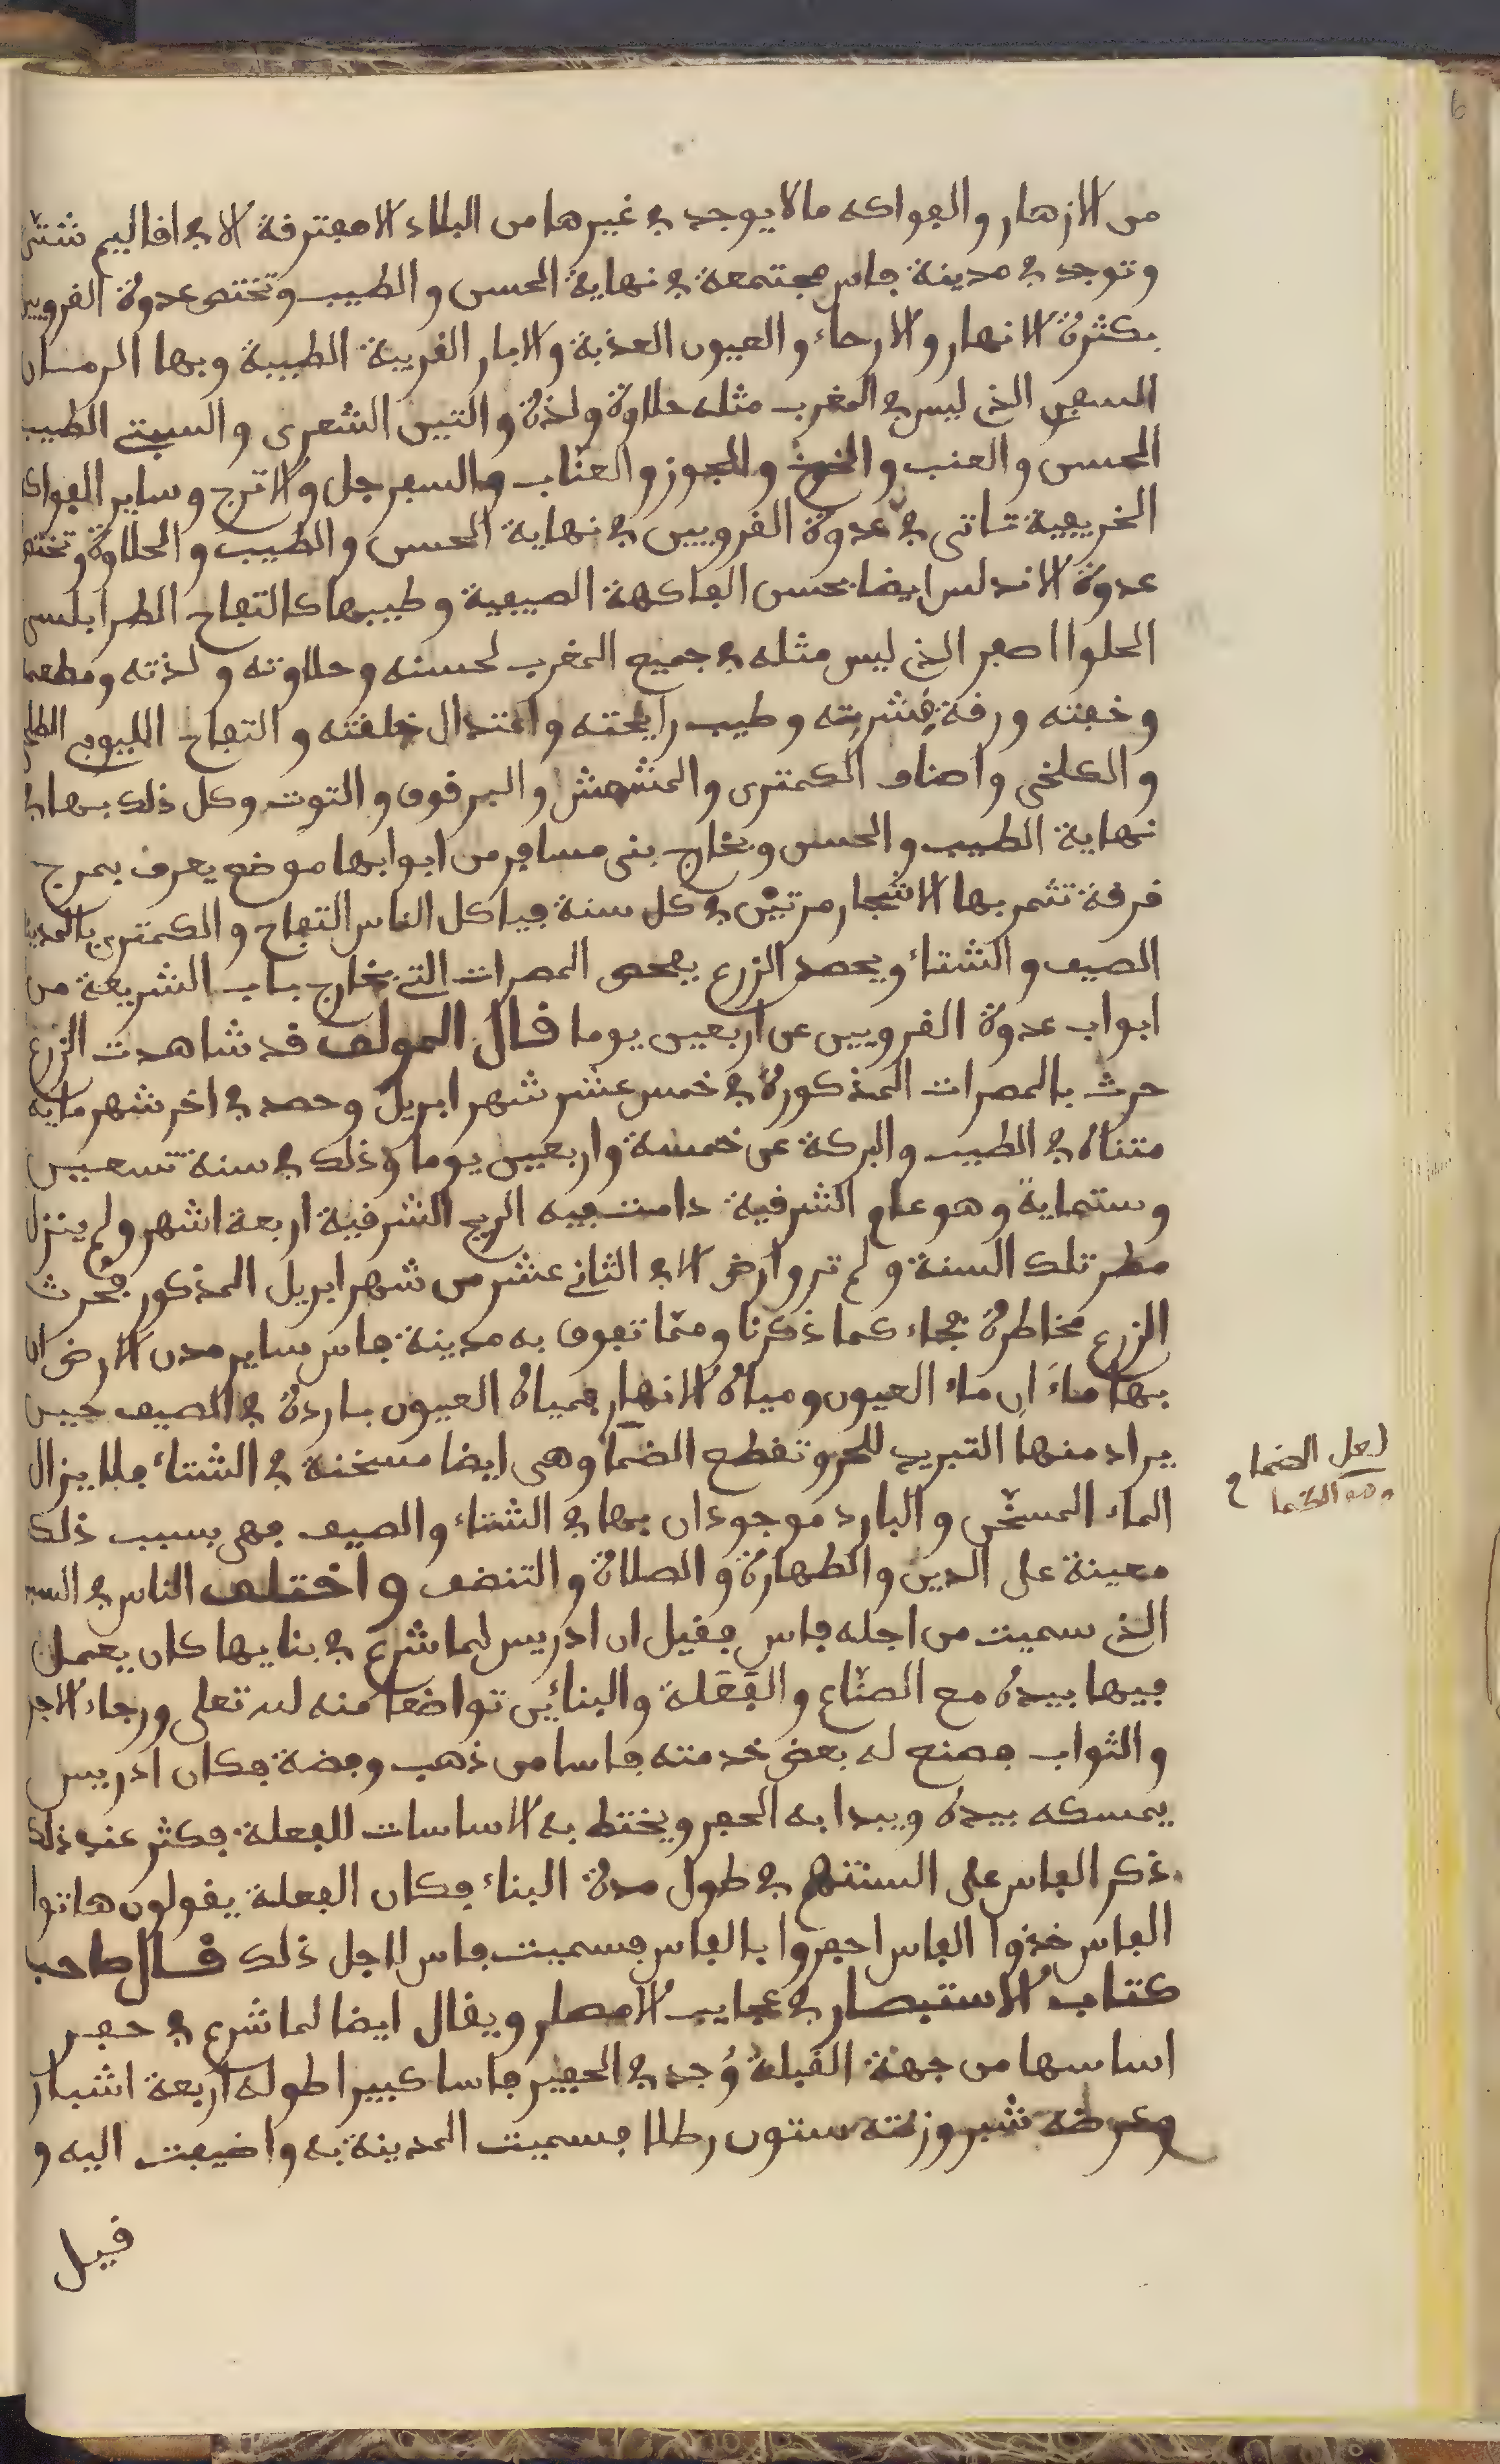 من الازهار والفواكه ما لا يوجد في غيرها من البلاد الا مفترقة الا في اقاليم شتى
وتوجد في مدينة فاس مجتمعة في نهاية الحسن والطيب وتختص عدوة القرويين
بكثرة الانهار والارحاء والعيون العذبة والابار القريبة الطيبة وبها الرمان
السفري الذي ليس في المغرب مثله حلاوة ولذة والتين الشعري والسبتي الطيب
الحسن والعنب والخوخ والجوز والعنّاب والسفرجل والاترج وساير الفواك
الخريفية تاتي في عدوة القرويين في نهاية الحسن والطيب والحلاوة وتختص
عدوة الاندلس ايضا بحسن الفاكهة الصيفية وطيبها كالتفاح الطرابلسي
الحلوا اصفر الذي ليس مثله في جميع المغرب لحسنه وحلاوته ولذته ومطعمه
وخفته ورقة قشرته وطيب رايحته واعتدال خلقته والتفاح الليوي الطلحي
والكلخي واصناف الكمترى والمشمش والبرقوق والتوت وكل ذلك بها في
نهاية الطيب والحسن وبخارج بني مسافر من ابوابها موضع يعرف بمرج
قرقة تثمر بها الاشجار مرتيْن في كل سنة فياكل الناس التفاح والكمترى بالمدينة
الصيف والشتاء ويحصد الزرع بفحص المصرات التي بخارج باب الشريعة من
ابواب عدوة القرويين عن اربعين يوما قال المولف قد شاهدت الزرع
حرث بالمصرات المذكورة في خمس عشر شهر ابريل وحصد في اخر شهر مايه
متناه في الطيب والبركة عن خمسة واربعين يوما وذلك في سنة تسعين
وستماية وهو عام الشرقية دامت فيه الريح الشرقية اربعة اشهر ولم ينزل
مطر تلك السنة ولم تروا رض الا في الثاني عشر من شهر ابريل المذكور فحُرث
الزرع مخاطرة فجاء كما ذكرنا وممّا تفوق به مدينة فاس ساير مدن الارض ان
بها ماءَ ان ماء العيون ومياه الانهار فمياه العيون باردة في الصيف حين
يراد منها التبريد للحر وتقطع الضما وهي ايضا مسخنة في الشتاء فلا يزال
الماء المسخّن والبارد موجودان بها في الشتاء والصيف فهي بسبب ذلك
معينة على الدين والطهارة والصلاة والتنضف واختلف الناس في السبب
الذي سميت من اجله فاس فقيل ان ادريس لما شرع في بنايها كان يعمل
فيها بيده مع الصنّاع والفَعَلة والبنائين تواضعا منه لله تعلى ورجاء الاجر
والثواب فصنع له بعض خدمته فاسا من ذهب وفضة فكان ادريس
يمسكه بيده ويبدا به الحفر ويختط به الاساسات للفعلة فكثر عند ذلك
ذكر الفاس على السنتهم في طول مدة البناء فكان الفعلة يقولون هاتوا
الفاس خذوا الفاس احفروا بالفاس فسميت فاس لاجل ذلك قال صاحب
كتاب الاستبصار في عجايب الامصار ويقال ايضا لما شرع في حفر
اساسها من جهة القبلة وُجد في الحفير فاسا كبيرا طوله اربعة اشبار
وعرضه شبر وزنته ستون رطلا فسميت المدينة به واضيفت اليه و
قيل
لعل الضما
وهو الظما